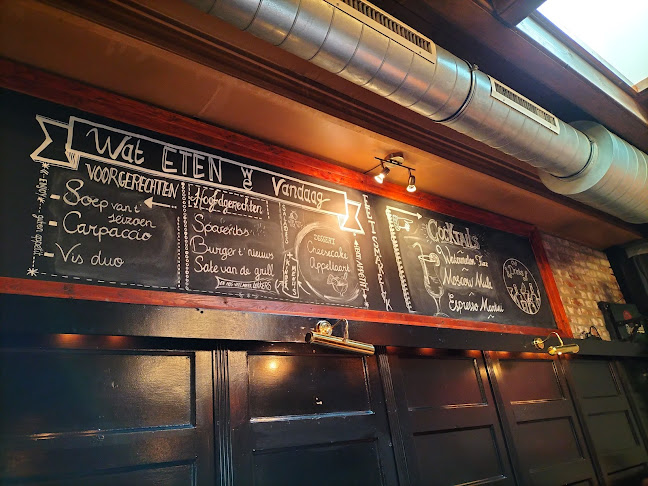 Wat ETEN we vandaag
VOORGERECHTEN
Soep van 't
seizoen
Carpaccio
Vis duo
Hoofdgerechten
Spareribs
Burger 't nieuws
Sate van de grill
DESSERT
Cheesecake
Appeltaart
EETSMAKELIJK
Cocktails
Moscow Mule
Espresso Martini